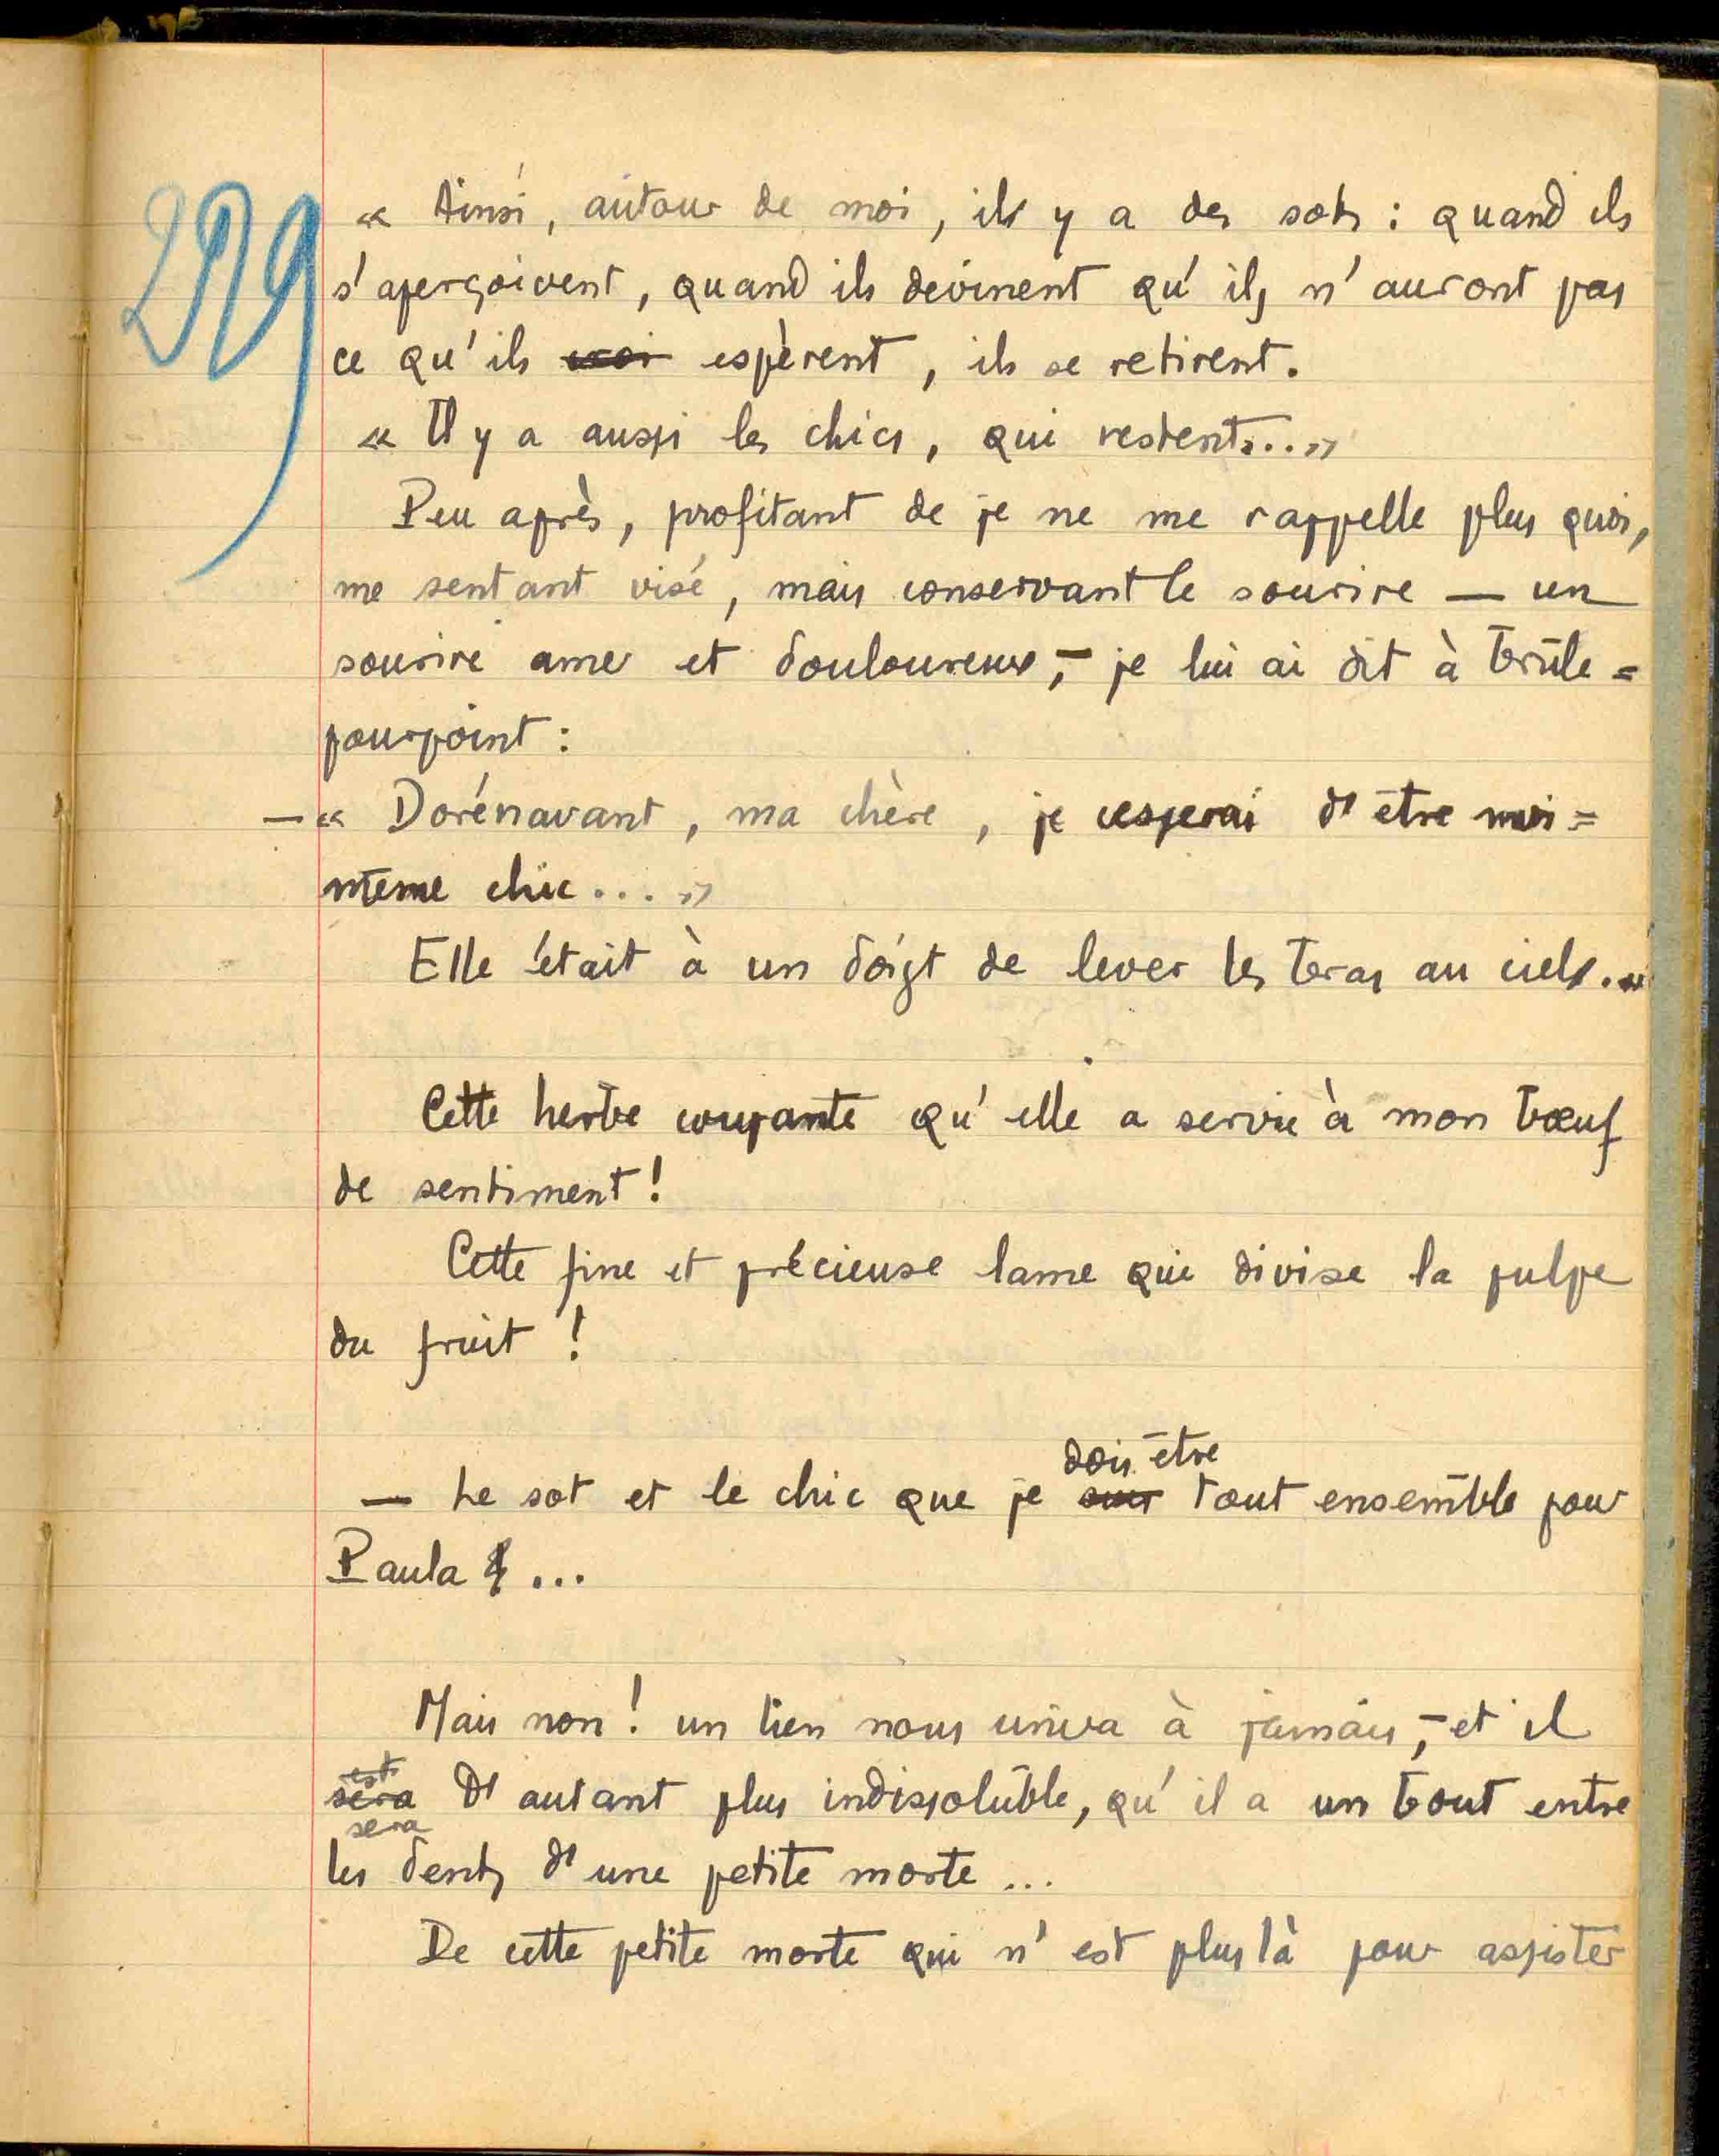 229
« Ainsi, autour de moi, ils y a des sots : quand ils
s'aperçoivent, quand ils devinent qu'ils n'auront pas
ce qu'ils espèrent, ils se retirent.
« Il y a aussi les chics, qui restent... »
Peu après, profitant de je ne me rappelle plus quoi,
me sentant visé, mais conservant le sourire — un
sourire amer et douloureux, — je lui ai dit à brûle=
pourpoint :
— « Dorénavant, ma chère, je cesserai d'être moi=
même chic... »
Elle était à un doigt de lever les bras au ciel...
Cette herbe coupante qu'elle a servie à mon bœuf
de sentiment !
Cette fine et précieuse lame qui divise la pulpe
du fruit !
dois être
— Le sot et le chic que je suis tout ensemble pour
Paula ...
Mais non ! un lien nous unira à jamais, — et il
est
sera d'autant plus indissoluble, qu'il a un bout entre
sera
les dents d'une petite morte ...
De cette petite morte qui n'est plus là pour assister